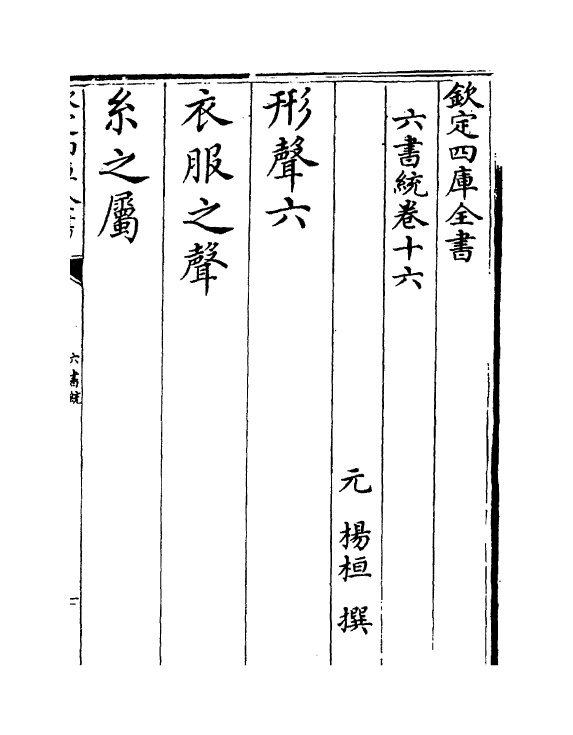 欽定四庫全書
六書統卷十六
元 楊桓 撰
形聲六
衣服之聲
糸之屬
六書統